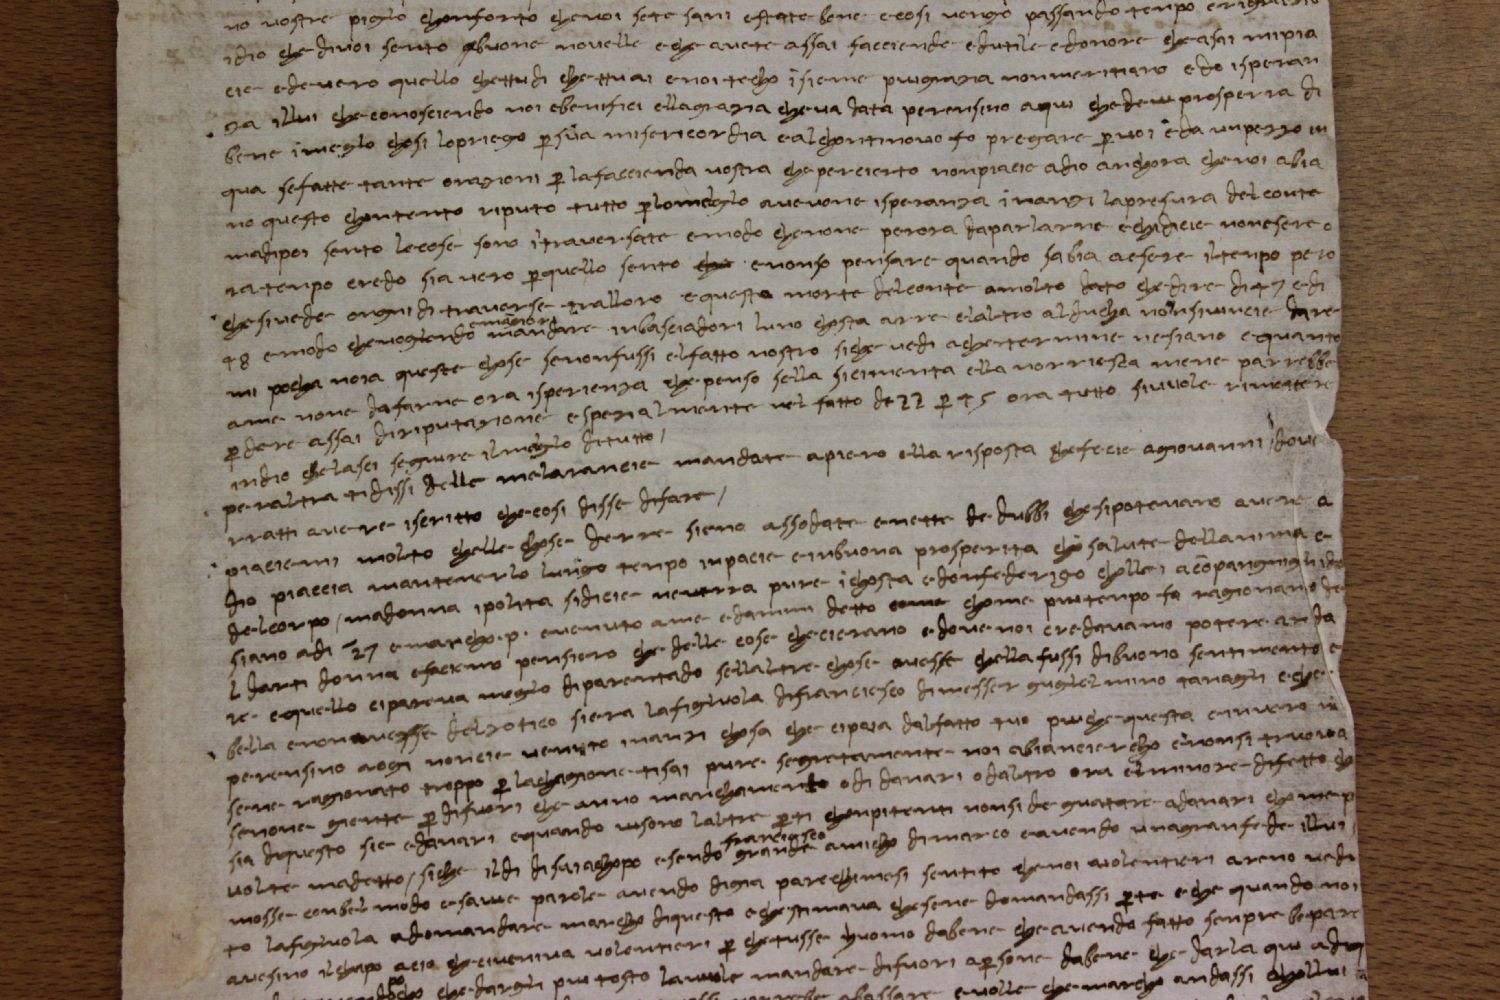 no vostre piglo chonforto che voi sete sani e state bene e cosi vengo passando tenpo e rigrazio
idio che di voi sento buone novelle e che avete assai facciende e d utile e d onore che asai mi pia
cie e de vero quello chettu di chettu ai e noi techo isieme piu grazia non meritiano e do isperan
za illui che conosciendo noi e benifici ella grazia che va data per ensino a qui che de prosperra di
bene i meglo chosi lo priego per sua misericordia e al chontinovo fo pregare per voi e da un pezzo in
qua sefatte tante orazioni per la faccienda vostra che percierto non piacie a dio anchora che voi abia
no questo chontento riputo tutto per lo meglo avevone isperanza inanzi la presura del conte
ma dipoi sento le cose sono itraversate e modo che none per ora da parlarne e chi dicie none sere o
ra tenpo credo sia vero per quello sento e non so pensare quando s abia a esere il tenpo pero
che si vede ongni di traverse tralloro e questa morte del conte a molto detto che dire di 47 e di
48 e modo che vogliendo mandare inbasciadori l uno chosta a rre e l altro al ducha non si vincie dare
mi pocha noia queste chose se non fussi el fatto nostro siche vedi a che termine ne siano e quanto
a me none da farne ora isperienza che penso sella si cimenta ella non riesca mene parrebbe
perdere assai di riputazione e spezialmente nel fatto de 22 per 45 ora tutto si vuole rimettere
in dio che lasci seguire il meglo di tutto /
per altra ti dissi delle melarancie mandate a piero e lla risposta che fecie a giovanni / dove
rratti avere iscritto che cosi disse di fare /
piaciemi molto chelle chose de rre sieno assodate e nette de dubbi che si potevano avere a
dio piaccia mantenerlo lungo tenpo in pacie e in buona prosperita chon salute dell anima e
del corpo / madonna ipolita si dicie ne verra pure i chosta e don federigo cholle i a conpangnia
siano a di 27 e marcho p. e venuto a me e d ammi detto chome piu tenpo fa ragionano de
l darti donna e faciemo pensiero che delle cose che cierano e dove noi credavamo potere anda
re e quello ci pareva meglo di parentado sell altre chose avesse chella fussi di buono sentimento e
bella e non avesse del zotico si era la figluola di franciesco di messer guglelmino tanagli e che
per ensino a ogi non cie venuto inanzi chosa che ci paia dal fatto tuo piu che questa e in vero n
se ne ragionato troppo per la chagione ti sai pure segretamente noi abian cierchо e non si truova
se none giente per di fuori che anno manchamento o di danari o d altro ora el minore difetto ch
sia di questo si e danari e quando vi sono l altre parti chonpitenti non si de guatare a danari chome p
volte madetto / siche il di di sa iachopo esendo franciesco grande amicho di marco e avendo una gran fede illui
mosse con bel modo e savie parole avendo di gia parechi mesi sentito che noi volentieri areno vedi
to la figluola a domandare marcho di questo e che stimava che sene domandassi per te e che quando noi
avesino il chapo a cio che ci veniva volentieri per che tusse huomo da bene che avendo fatto senpre bo pare
che dargli piu tosto la vuole mandare di fuori a persone da bene che darla qui a
abassare e volle che marcho andassi chollui